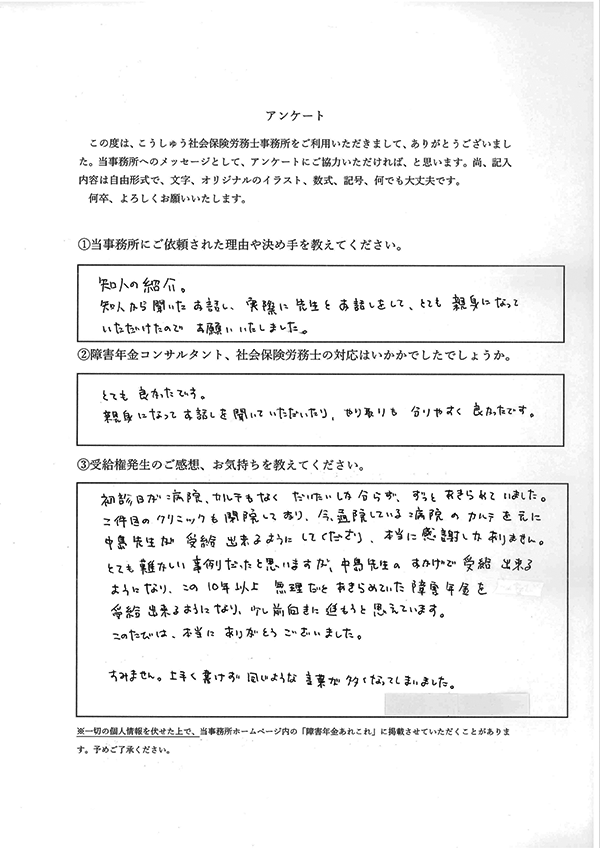 アンケート
この度は、こうしゅう社会保険労務士事務所をご利用いただきまして、ありがとうございまし
た。当事務所へのメッセージとして、アンケートにご協力いただければ、と思います。尚、記入
内容は自由形式で、文字、オリジナルのイラスト、数式、記号、何でも大丈夫です。
何卒、よろしくお願いいたします。
①当事務所にご依頼された理由や決め手を教えてください。
知人の紹介。
知人から聞いたお話し、実際に先生とお話しをして、とても親身になって
いただけたのでお願いいたしました。
②障害年金コンサルタント、社会保険労務士の対応はいかかでしたでしょうか。
とても良かったです。
親身になってお話しを聞いていただいたり、やり取りも分りやすく良かったです。
③受給権発生のご感想、お気持ちを教えてください。
初診日が病院、カルテもなくだいたいしか分らず、ずっとあきられていました。
二件目のクリニックも閉院しており、今、通院している病院のカルテを元に
中島先生が受給出来るようにしてくださり、本当に感謝しかありません。
とても難かしい事例だったと思いますが、中島先生のおかげで受給出来る
ようになり、この10年以上無理だとあきらめていた障害年金を
受給出来るようになり、少し前向きに進もうと思えています。
このたびは、本当にありがとうございました。
すみません。上手く書けず同じような言葉が多くなってしまいました。
※一切の個人情報を伏せた上で、当事務所ホームページ内の「障害年金あれこれ」に掲載させていただくことがありま
す。予めご了承ください。